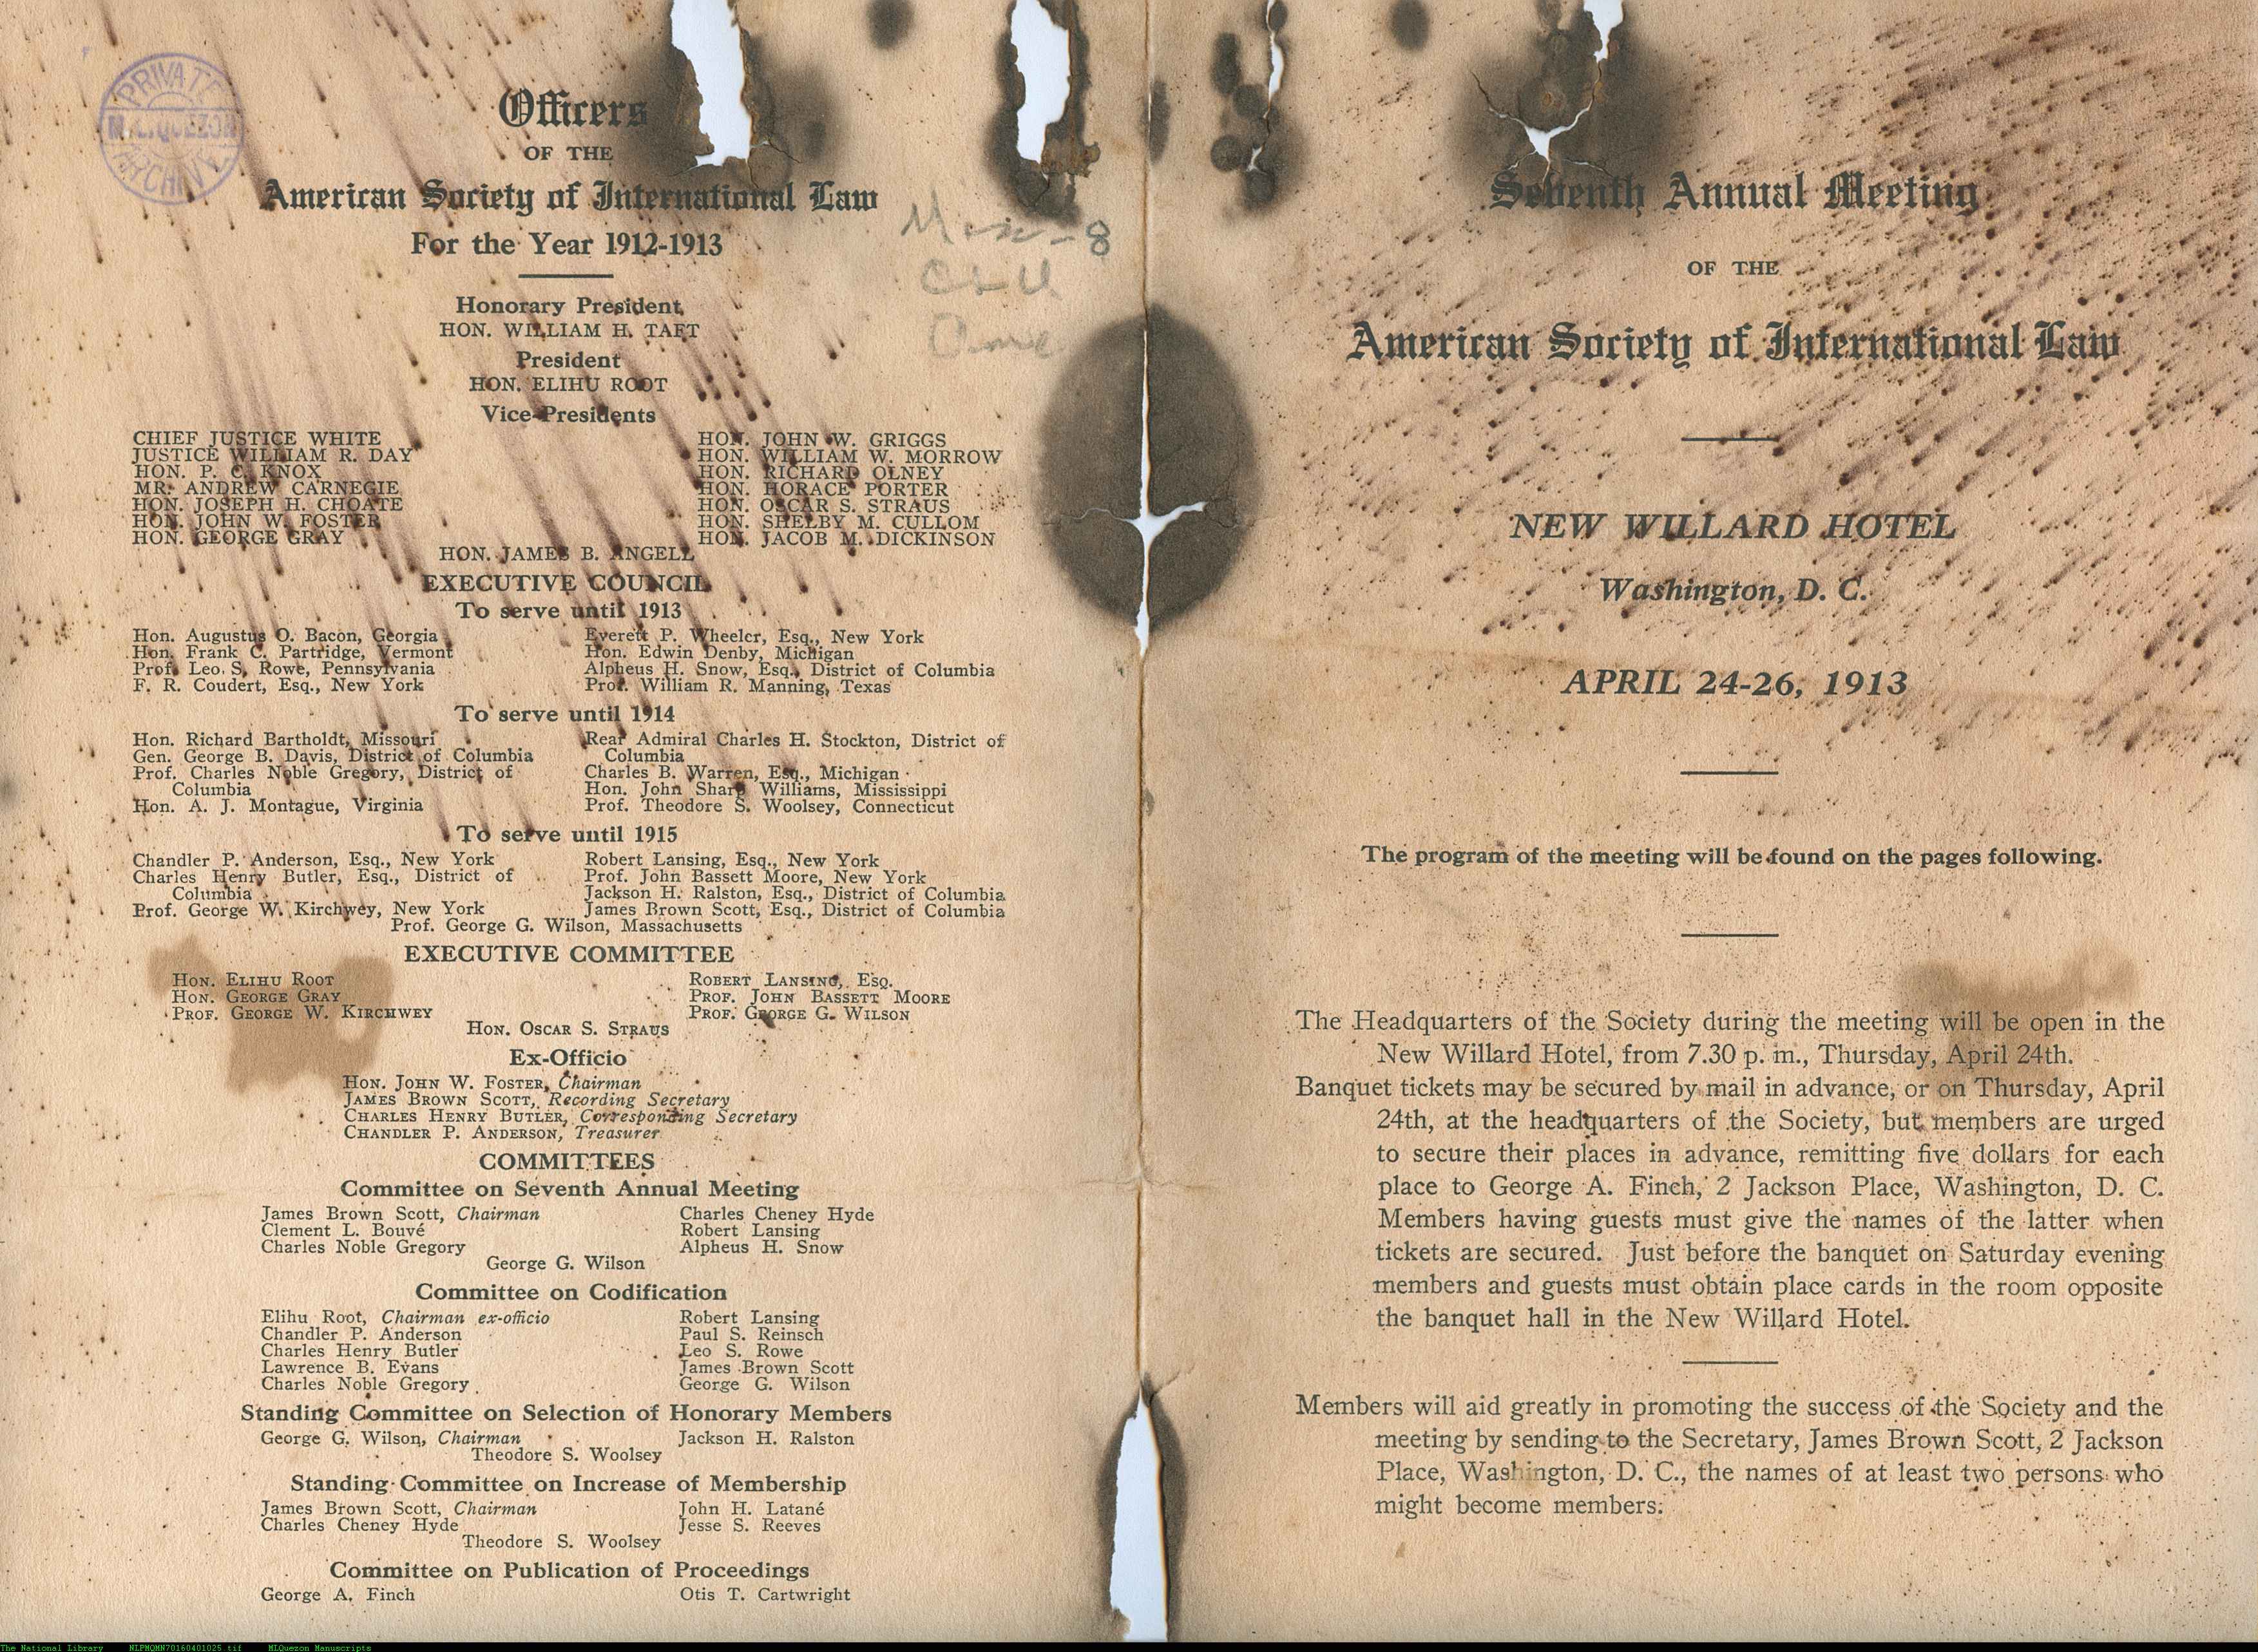 PRIVATE
M.L.QUEZON
ARCHIVE
Officers
OF THE
American Society of International Law
For the Year 1912-1913
Honorary President
HON. WILLIAM H. TAFT
President
HON. ELIHU ROOT
Vice-Presidents
CHIEF JUSTICE WHITE
JUSTICE WILLIAM R. DAY
HON. P. C. KNOX
MR. ANDREW CARNEGIE
HON. JOSEPH H. CHOATE
HON. JOHN W. FOSTER
HON. GEORGE GRAY
HON. JOHN W. GRIGGS
HON. WILLIAM W. MORROW
HON. RICHARD OLNEY
HON. HORACE PORTER
HON. OSCAR S. STRAUS
HON. SHELBY M. CULLOM
HON. JACOB M. DICKINSON
HON. JAMES B. ANGELL
EXECUTIVE COUNCIL
To serve until 1913
Hon. Augustus O. Bacon, Georgia
Hon. Frank C. Partridge, Vermont
Prof. Leo S. Rowe, Pennsylvania
F. R. Coudert, Esq., New York
Everett P. Wheeler, Esq., New York
Hon. Edwin Denby, Michigan
Alpheus H. Snow, Esq., District of Columbia
Prof. William R. Manning, Texas
To serve until 1914
Hon. Richard Bartholdt, Missouri
Gen. George B. Davis, District of Columbia
Prof. Charles Noble Gregory, District of
Columbia
Hon. A. J. Montague, Virginia
Rear Admiral Charles H. Stockton, District of
Columbia
Charles B. Warren, Esq., Michigan
Hon. John Sharp Williams, Mississippi
Prof. Theodore S. Woolsey, Connecticut
To serve until 1915
Chandler P. Anderson, Esq., New York
Charles Henry Butler, Esq., District of
Columbia
Prof. George W. Kirchwey, New York
Robert Lansing, Esq., New York
Prof. John Bassett Moore, New York
Jackson H. Ralston, Esq., District of Columbia
James Brown Scott, Esq., District of Columbia
Prof. George G. Wilson, Massachusetts
EXECUTIVE COMMITTEE
HON. ELIHU ROOT
HON. GEORGE GRAY
PROF. GEORGE W. KIRCHWEY
ROBERT LANSING, ESQ.
PROF. JOHN BASSETT MOORE
PROF. GEORGE G. WILSON
HON. OSCAR S. STRAUS
Ex-Officio
HON. JOHN W. FOSTER, Chairman
JAMES BROWN SCOTT, Recording Secretary
CHARLES HENRY BUTLER, Corresponding Secretary
CHANDLER P. ANDERSON, Treasurer
COMMITTEES
Committee on Seventh Annual Meeting
James Brown Scott, Chairman
Clement L. Bouvé
Charles Noble Gregory
Charles Cheney Hyde
Robert Lansing
Alpheus H. Snow
George G. Wilson
Committee on Codification
Elihu Root, Chairman ex-officio
Chandler P. Anderson
Charles Henry Butler
Lawrence B. Evans
Charles Noble Gregory
Robert Lansing
Paul S. Reinsch
Leo S. Rowe
James Brown Scott
George G. Wilson
Standing Committee on Selection of Honorary Members
George G. Wilson, Chairman
Jackson H. Ralston
Theodore S. Woolsey
Standing Committee on Increase of Membership
James Brown Scott, Chairman
Charles Cheney Hyde
John H. Latané
Jesse S. Reeves
Theodore S. Woolsey
Committee on Publication of Proceedings
George A. Finch
Otis T. Cartwright
Seventh Annual Meeting
OF THE
American Society of International Law
NEW WILLARD HOTEL
Washington, D. C.
APRIL 24-26, 1913
The program of the meeting will be found on the pages following.
The Headquarters of the Society during the meeting will be open in the
New Willard Hotel, from 7.30 p. m., Thursday, April 24th.
Banquet tickets may be secured by mail in advance, or on Thursday, April
24th, at the headquarters of the Society, but members are urged
to secure their places in advance, remitting five dollars for each
place to George A. Finch, 2 Jackson Place, Washington, D. C.
Members having guests must give the names of the latter when
tickets are secured. Just before the banquet on Saturday evening
members and guests must obtain place cards in the room opposite
the banquet hall in the New Willard Hotel.
Members will aid greatly in promoting the success of the Society and the
meeting by sending to the Secretary, James Brown Scott, 2 Jackson
Place, Washington, D. C., the names of at least two persons who
might become members.
The National Library NLPMQMN70160401025.tif MLQuezon Manuscripts